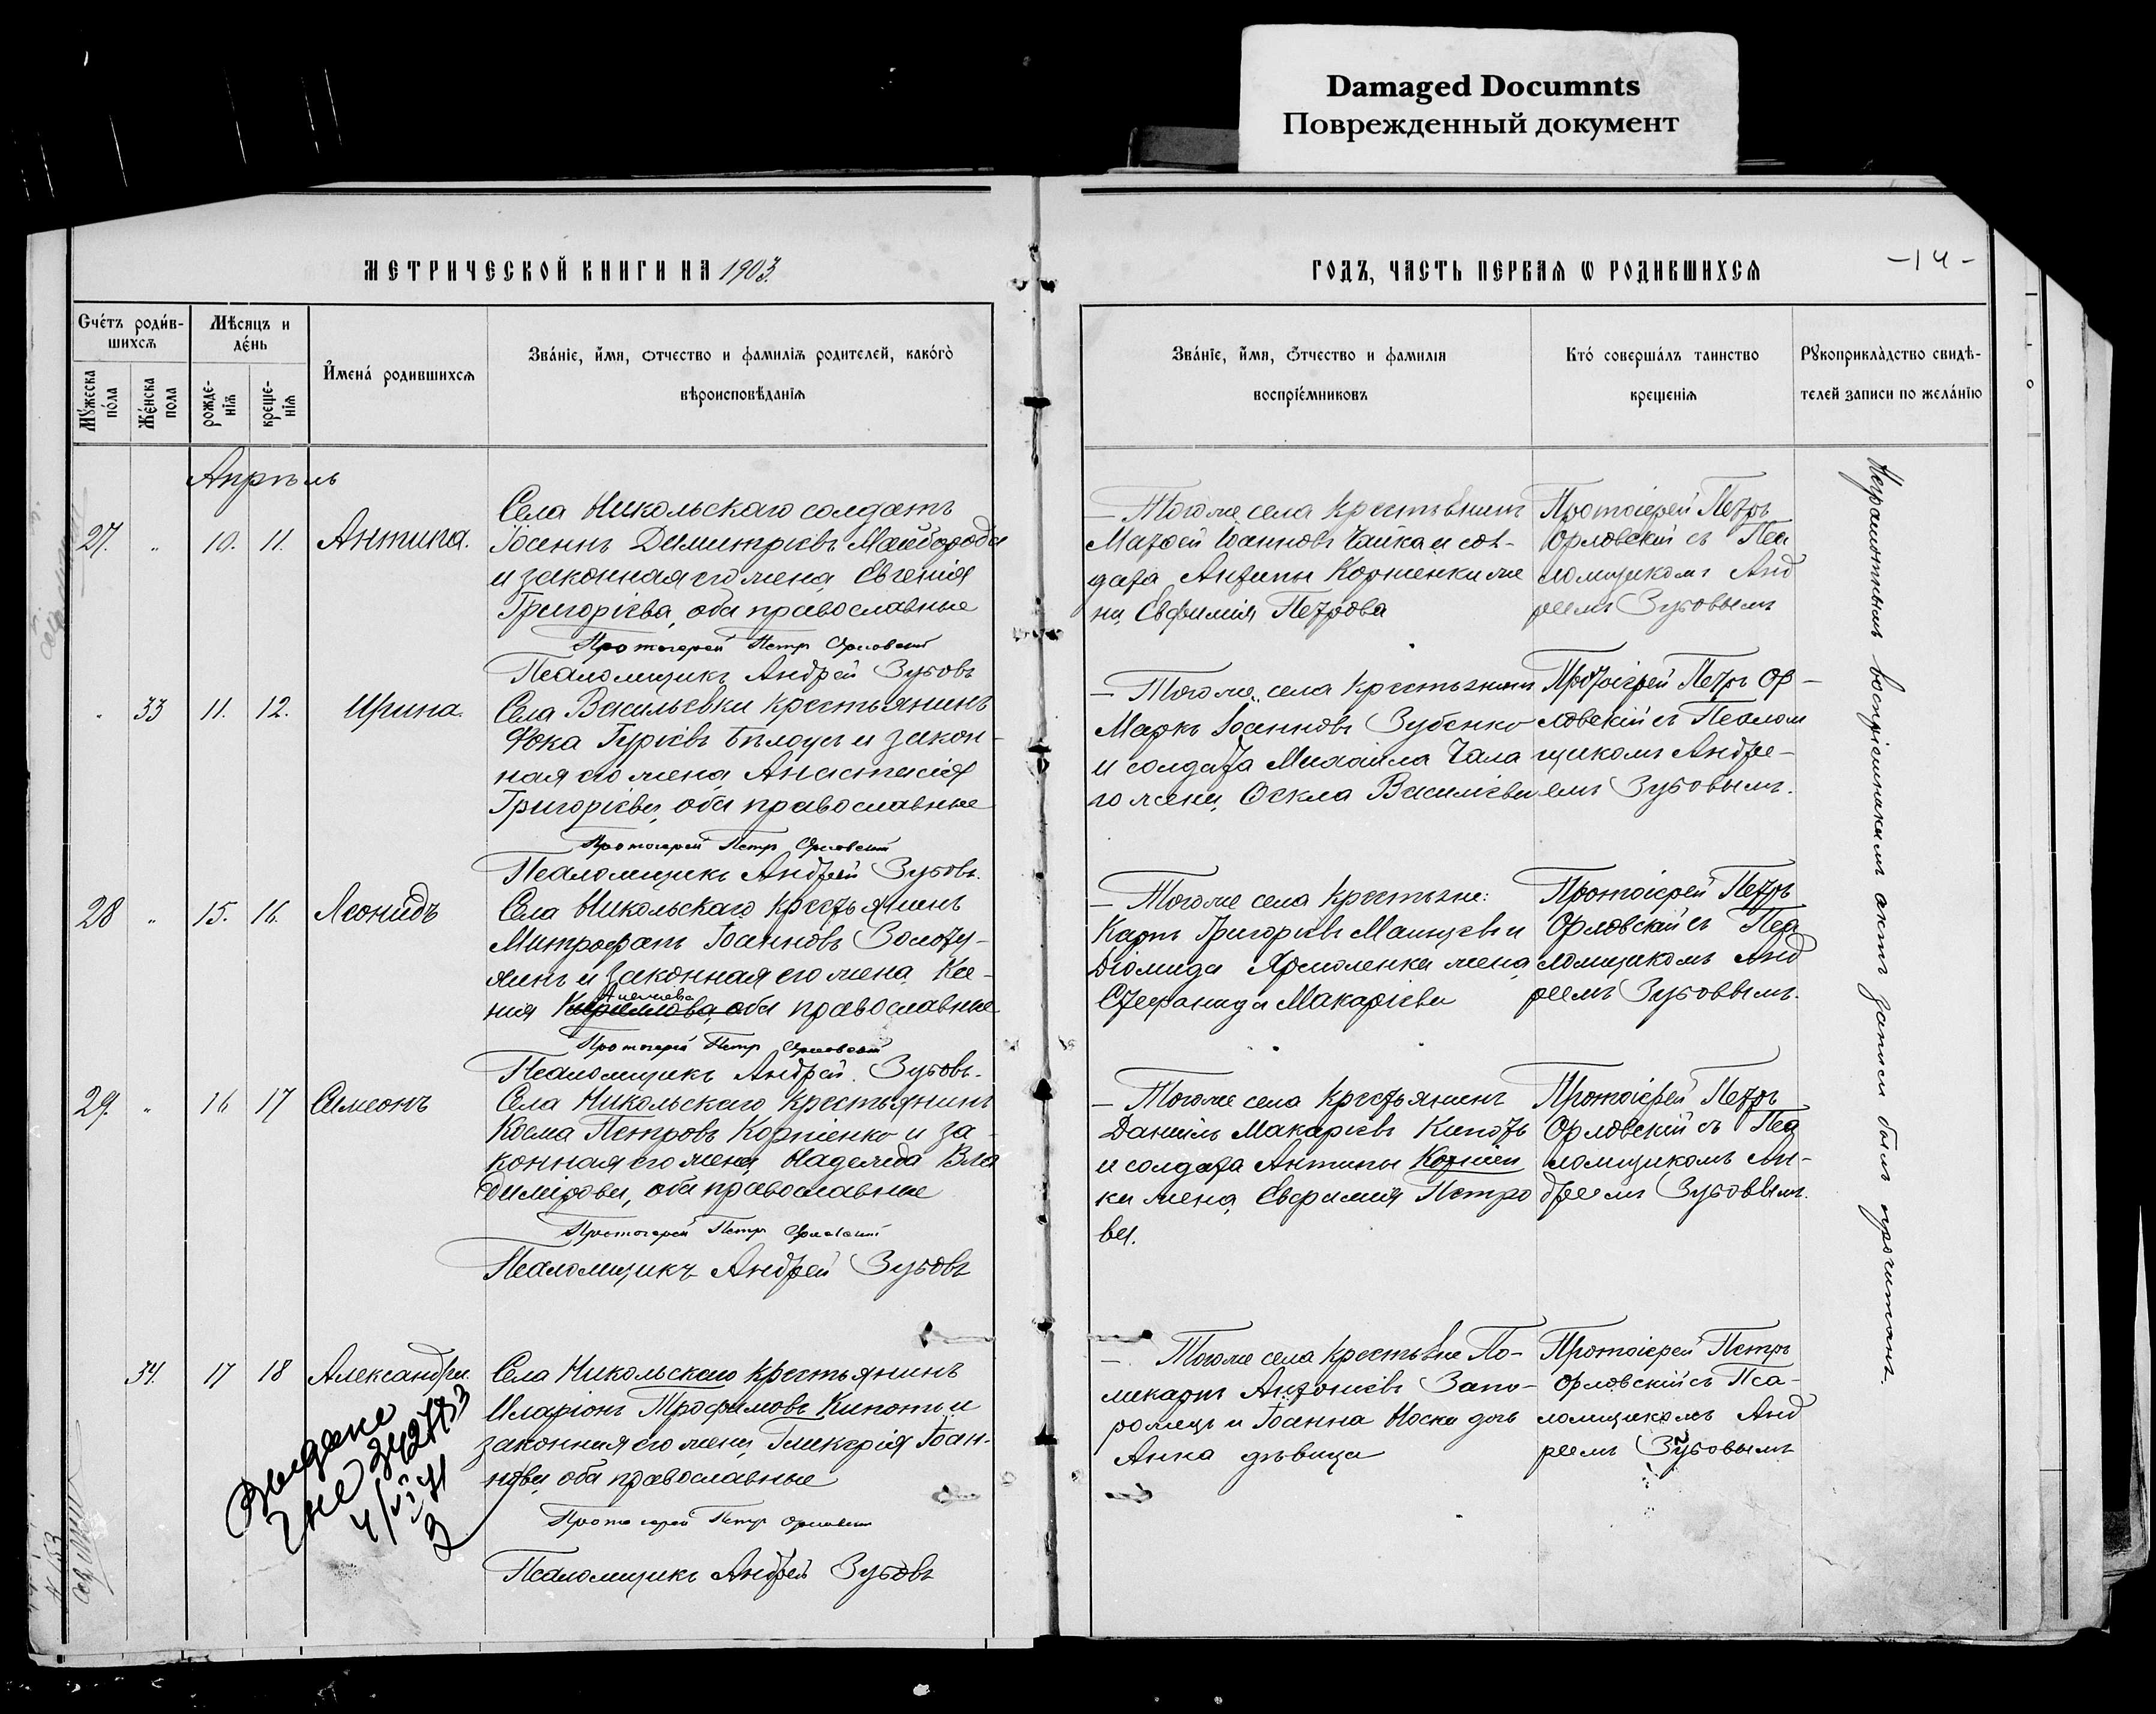 Damaged Documnts
Поврежденный документ
МЕТРИЧЕСКОЙ КНИГИ НА 1903
ГОДЪ, ЧАСТЬ ПЕРВАЯ Ѡ РОДИВШИХСЯ
-14-
Счетъ родив-
шихся
Мѣсяцъ и
день
Мужеска
пола
Женска
пола
рожде-
нія
креще-
нія
Имена родившихся
Званіе, имя, отчество и фамилія родителей, какого
вѣроисповѣданія
Званіе, имя, отчество и фамилія
воспріемниковъ
Кто совершалъ таинство
крещенія
Рукоприкладство свидѣ-
телей записи по желанію
Апрѣль
27. " 10. 11. Антипа.
Села Никольскаго солдатъ
Іоаннъ Димитріевъ Майборода
и законная его жена Евгенія
Григорієва, оба православные
Протоіерей Петръ Орловскій
Псаломщикъ Андрей Зубовъ
— Тогоже села крестьянинъ
Матѳей Іоанновъ Чайка и сол-
дата Антипы Корніенки же
на Евфимія Петрова
Протоіерей Петръ
Орловскій съ Пса
ломщикомъ Анд
реемъ Зубовымъ
" 33 11. 12. Ирина.
Села Васильевки крестьянинъ
Фока Гурієвъ Бѣлоусъ и закон-
ная его жена Анастасія
Григорієва, оба православные
Протоіерей Петръ Орловскій
Псаломщикъ Андрей Зубовъ.
— Тогоже села крестьянинъ
Маркъ Іоанновъ Зубенко
и солдата Михаила Чала
го жена Ѳекла Василіева
Протоіерей Петръ Ор-
ловскій съ Псалом
щикомъ Андре-
емъ Зубовымъ.
28 " 15. 16. Леонидъ
Села Никольскаго крестьянинъ
Митрофанъ Іоанновъ
и законная его жена Ксе-
нія Кириллова, оба православные
Протоіерей Петръ Орловскій
Псаломщикъ Андрей Зубовъ.
— Тогоже села крестьяне:
Карпъ Григорієвъ и
Діомида Ярмоленка жена
Стефанида Макарієва
Протоіерей Петръ
Орловскій съ Пса
ломщикомъ Анд
реемъ Зубовымъ.
29. " 16 17 Симеонъ
Села Никольскаго крестьянинъ
Косма Петровъ Корніенко и за-
конная его жена Надежда Вла
димірова, оба православные
Протоіерей Петръ Орловскій
Псаломщикъ Андрей Зубовъ
— Тогоже села крестьянинъ
Даніилъ Макарієвъ Кипоть
и солдата Антипы Корніен
ки жена Евфимія Петро
ва.
Протоіерей Петръ
Орловскій съ Пса
ломщикомъ Ан-
дреемъ Зубовымъ.
34. 17 18 Александра.
Села Никольскаго крестьянинъ
Иларіонъ Трофимовъ Кипоть и
законная его жена Гликерія Іоан-
нова, оба православные
Протоіерей Петръ Орловскій
Псаломщикъ Андрей Зубовъ
— Тогоже села крестьяне По-
ликарпъ Антоніевъ Запо-
рожецъ и Іоанна Носка дочь
Анна дѣвица
Протоіерей Петръ
Орловскій съ Пса-
ломщикомъ Анд
реемъ Зубовымъ
Неграмотнымъ воспріемникамъ актъ записи былъ прочитанъ.